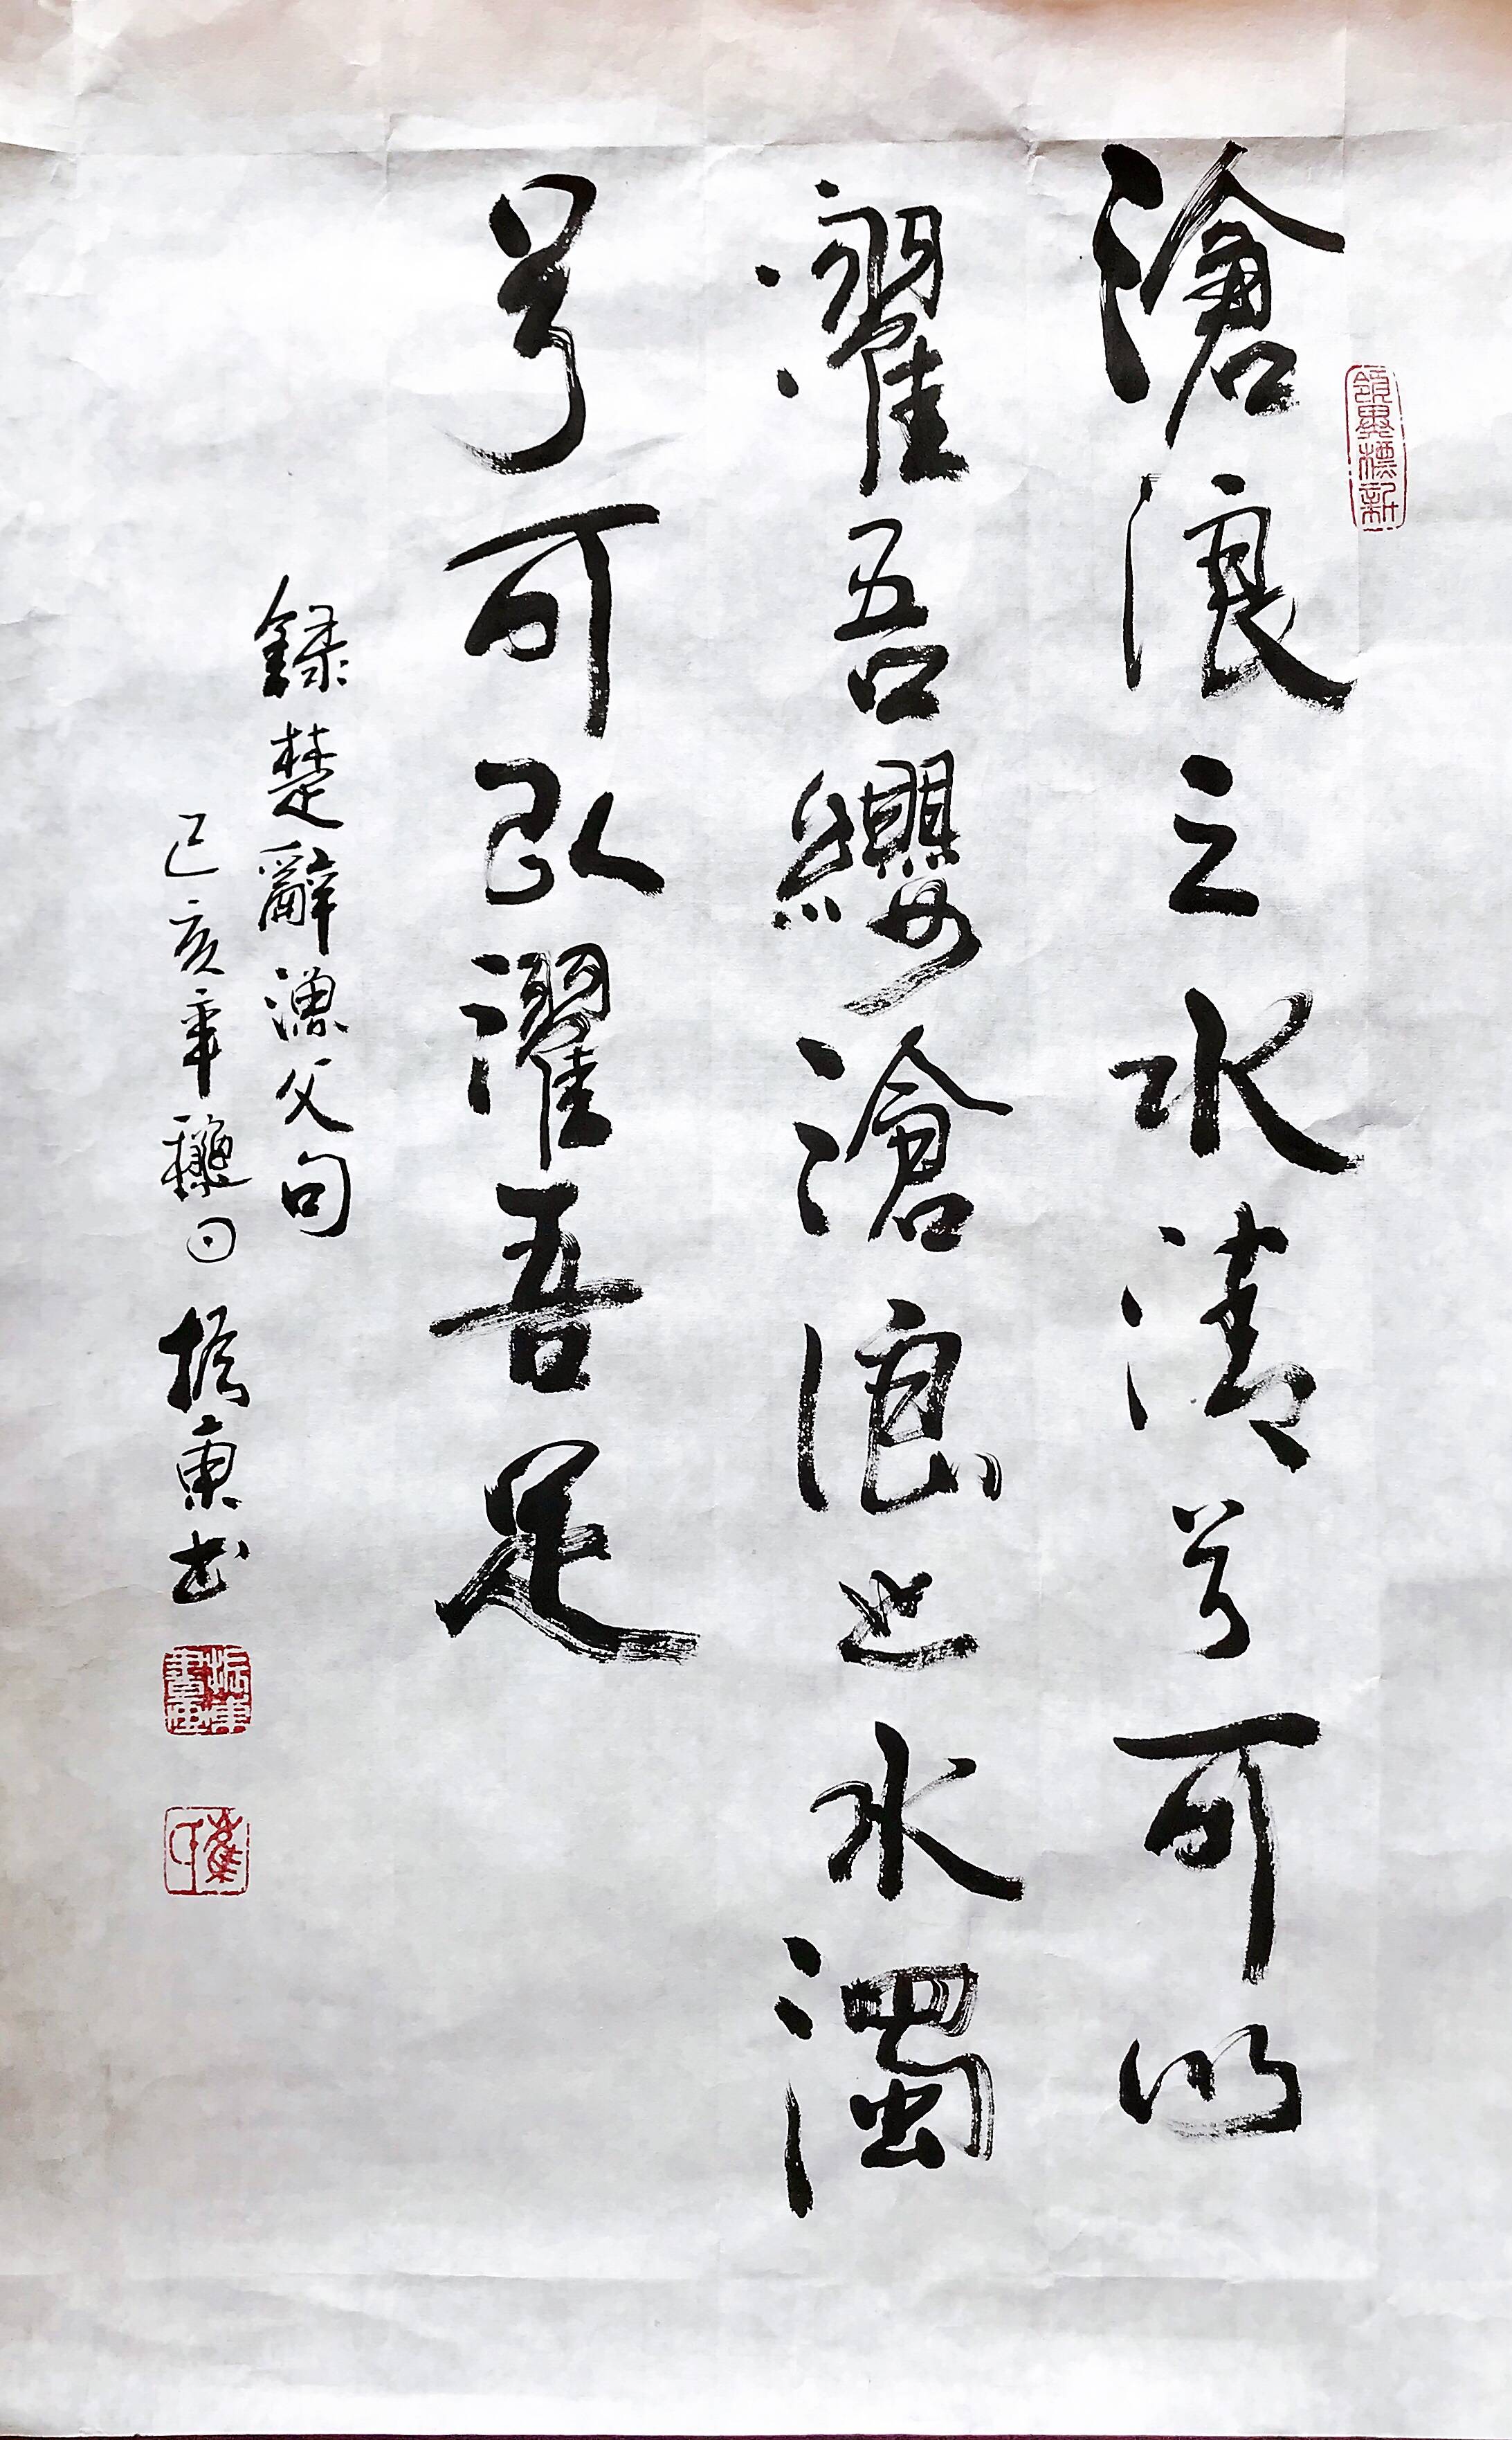 滄浪之水清兮可以
濯吾纓滄浪之水濁
兮可以濯吾足
錄楚辭漁父句
己亥年穐日振東書
領異標新
振東書畫